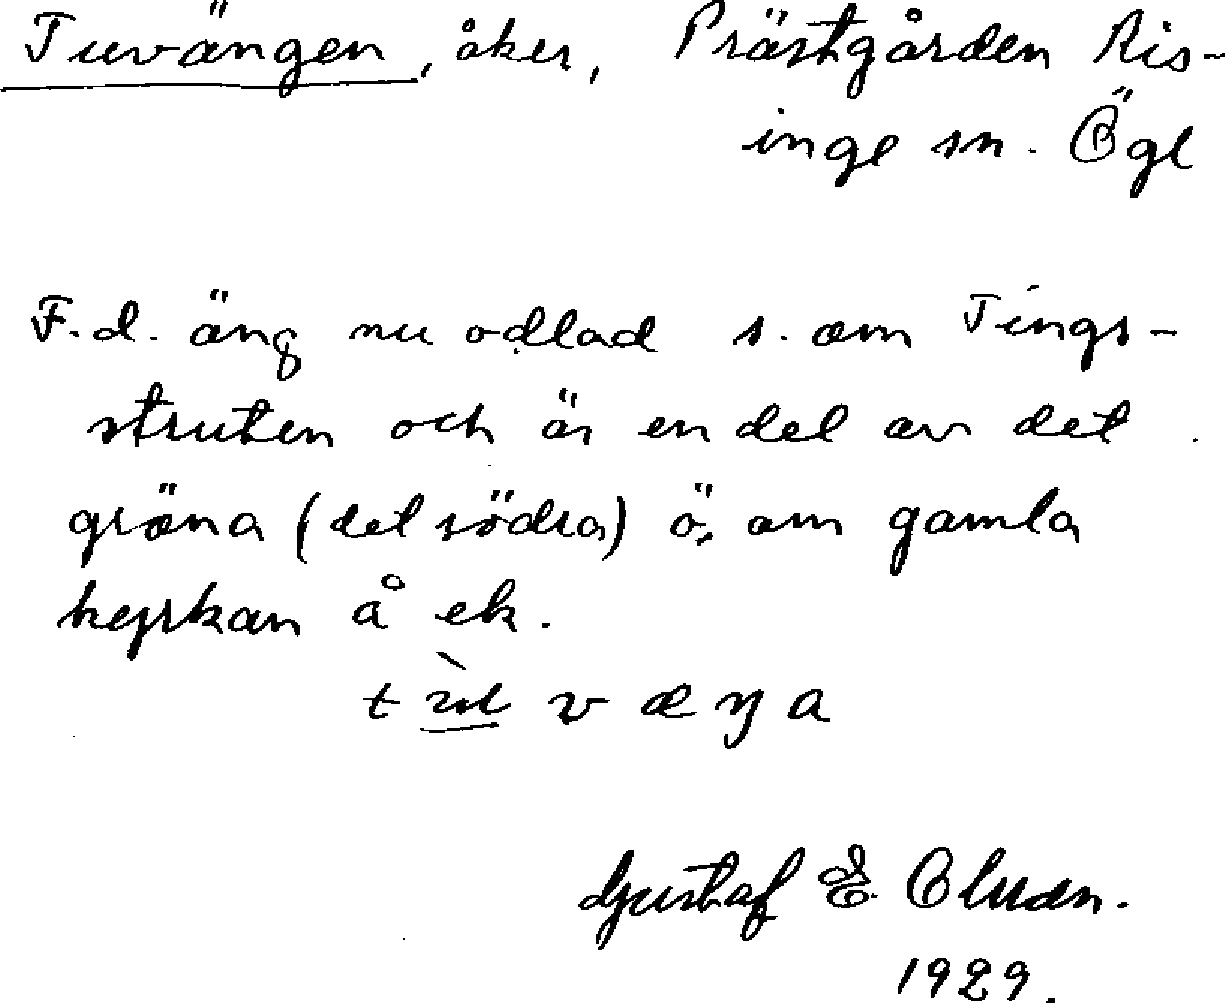 Tuvängen, åker, Prästgården Ris-
inge sn. Ögl
F.d. äng nu odlad s. om Tings-
struten och är en del av det
gröna (det södra) ö. om gamla
kyrkan å ek.
t ù v æ ŋ a
Gustaf E.
1929.